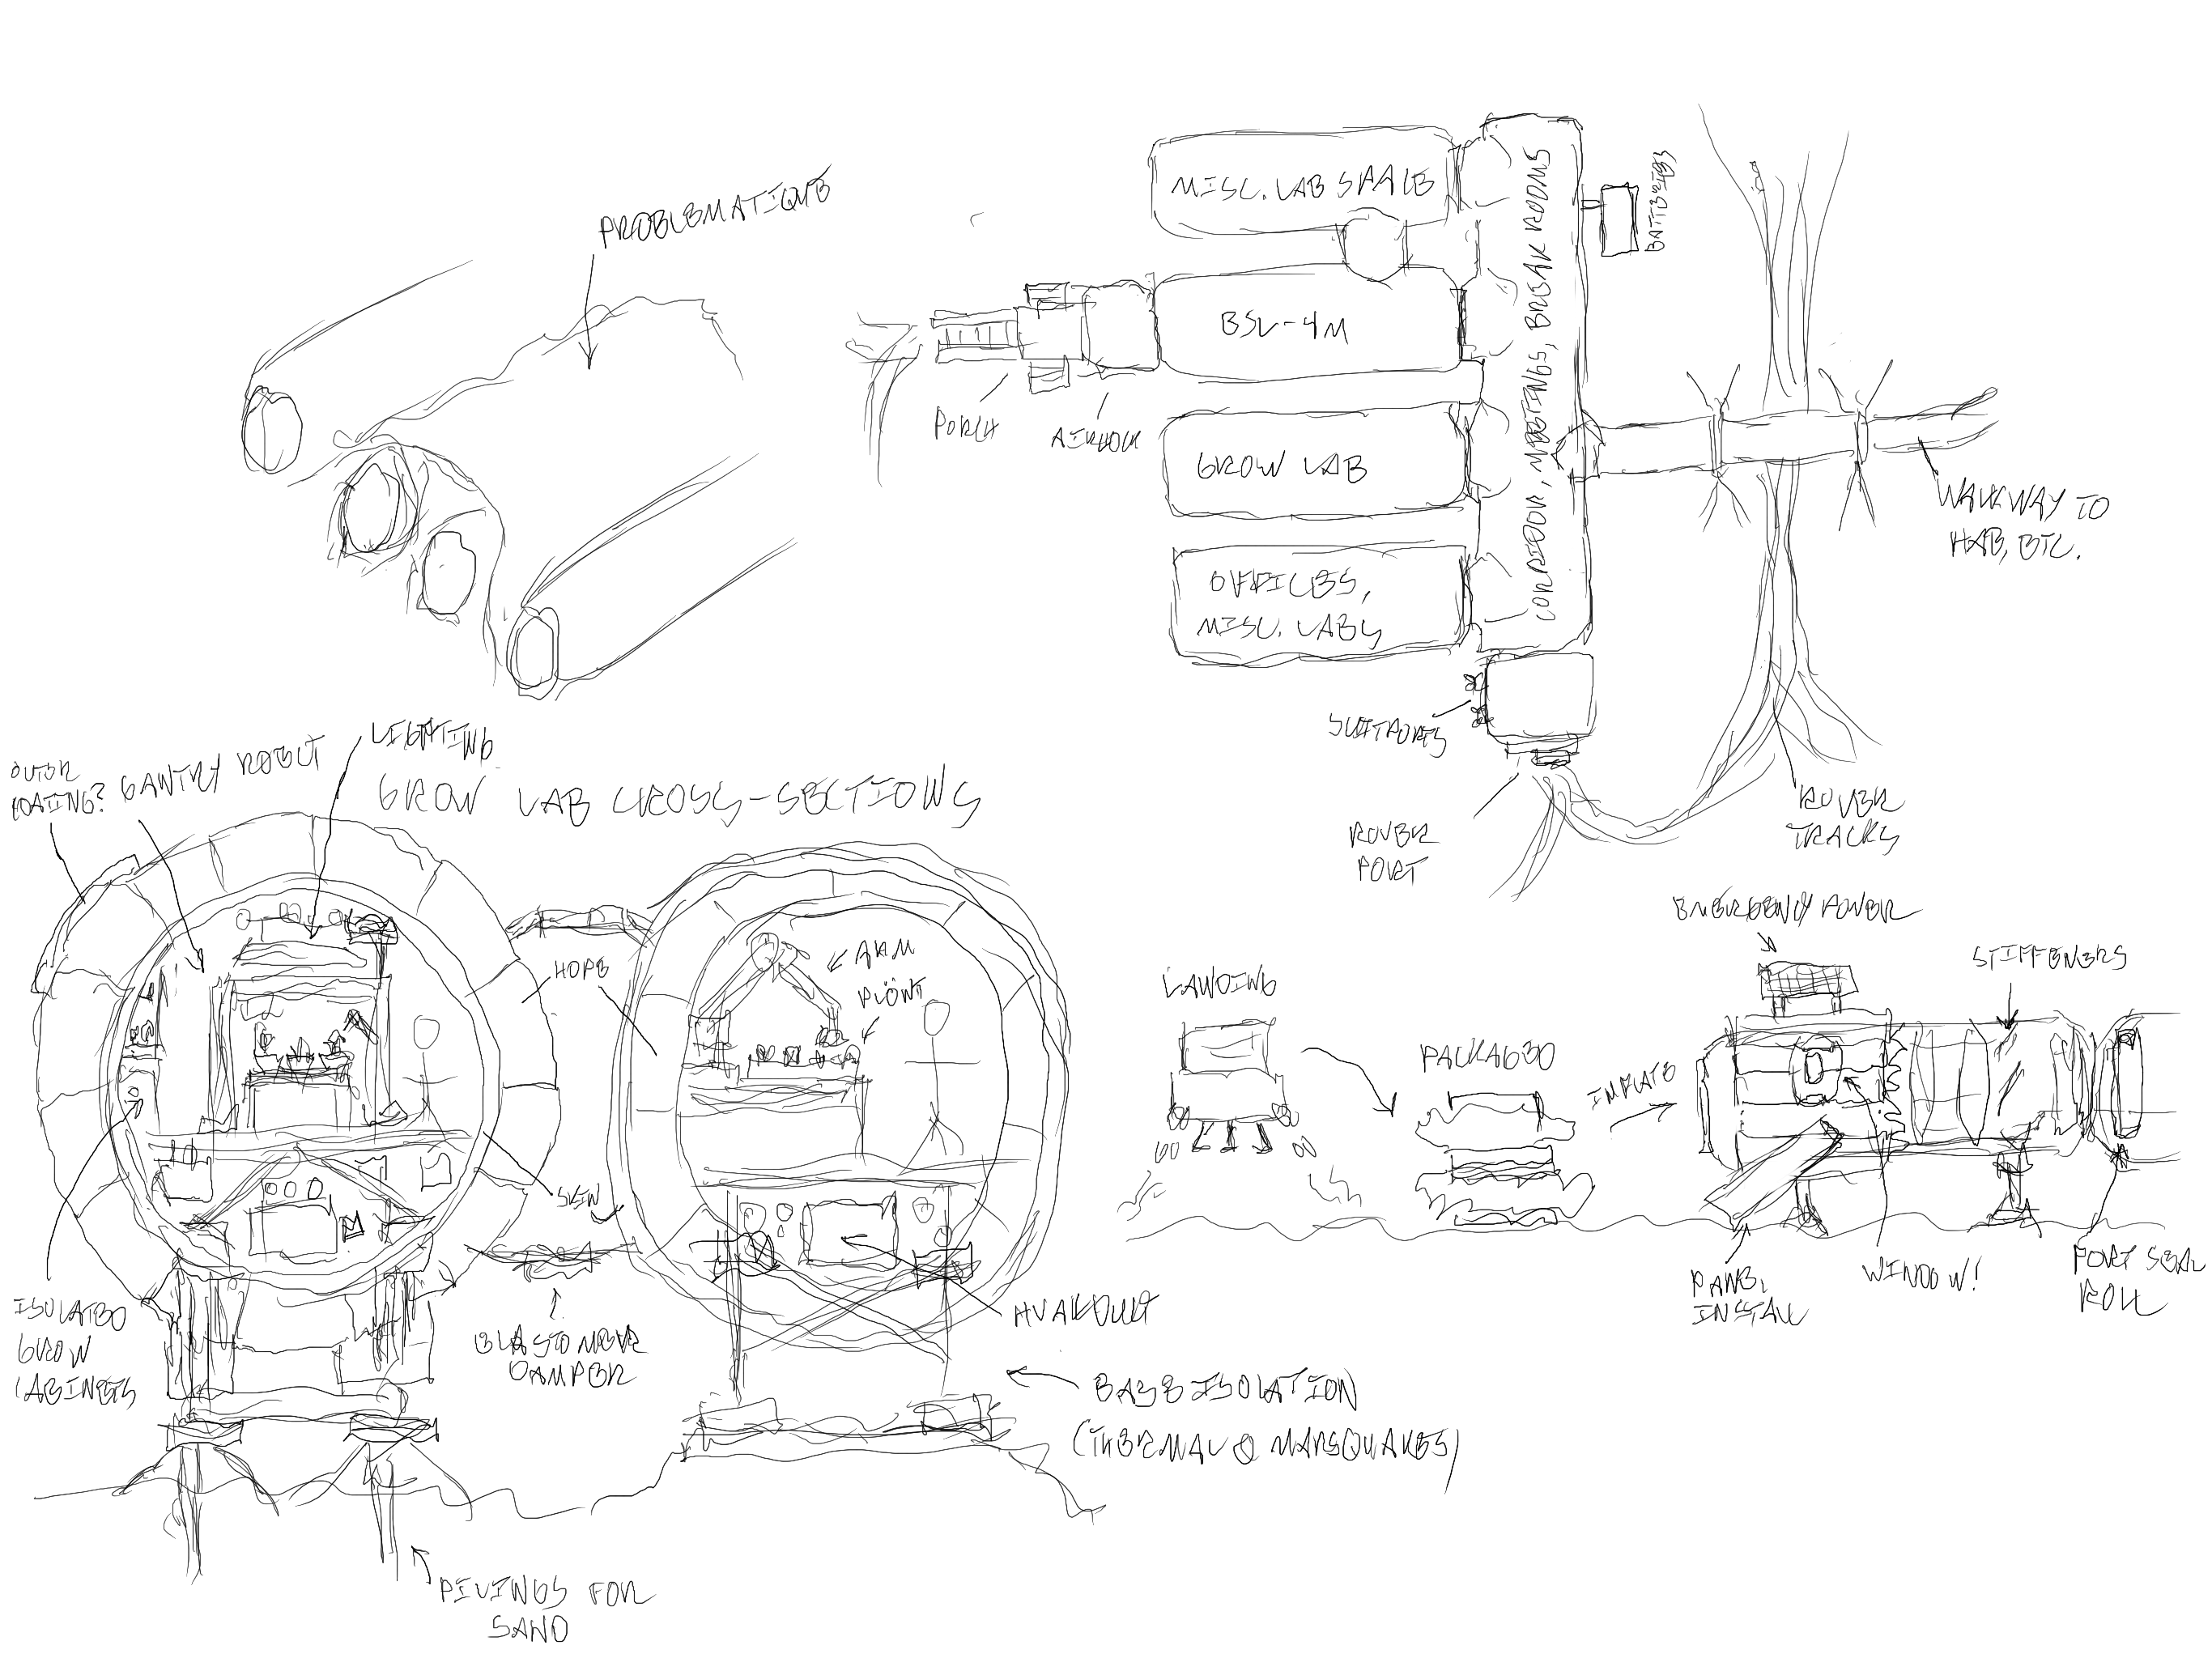 PROBLEMATIQUE
MISC. LAB SPACE
BSL-4M
GROW LAB
OFFICES,
MISC. LABS
CORRIDOR, MEETINGS, BREAK ROOMS
BATTERIES
PORCH
AIRLOCK
WALKWAY TO
HAB, ETC.
SUITPORTS
ROVER
PORT
ROVER
TRACKS
OUTER
COATING?
GANTRY ROBOT
LIGHTING
GROW LAB CROSS-SECTIONS
HDPE
ARM
PLÖNT
SKIN
ISOLATED
GROW
CABINETS
ELASTOMER
DAMPER
BASE ISOLATION
(THERMAL & MARSQUAKES)
PILINGS FOR
SAND
LANDING
PACKAGED
INFLATE
EMERGENCY POWER
STIFFENERS
PANEL
INSTALL
WINDOW!
PORT SEAL
ROLL